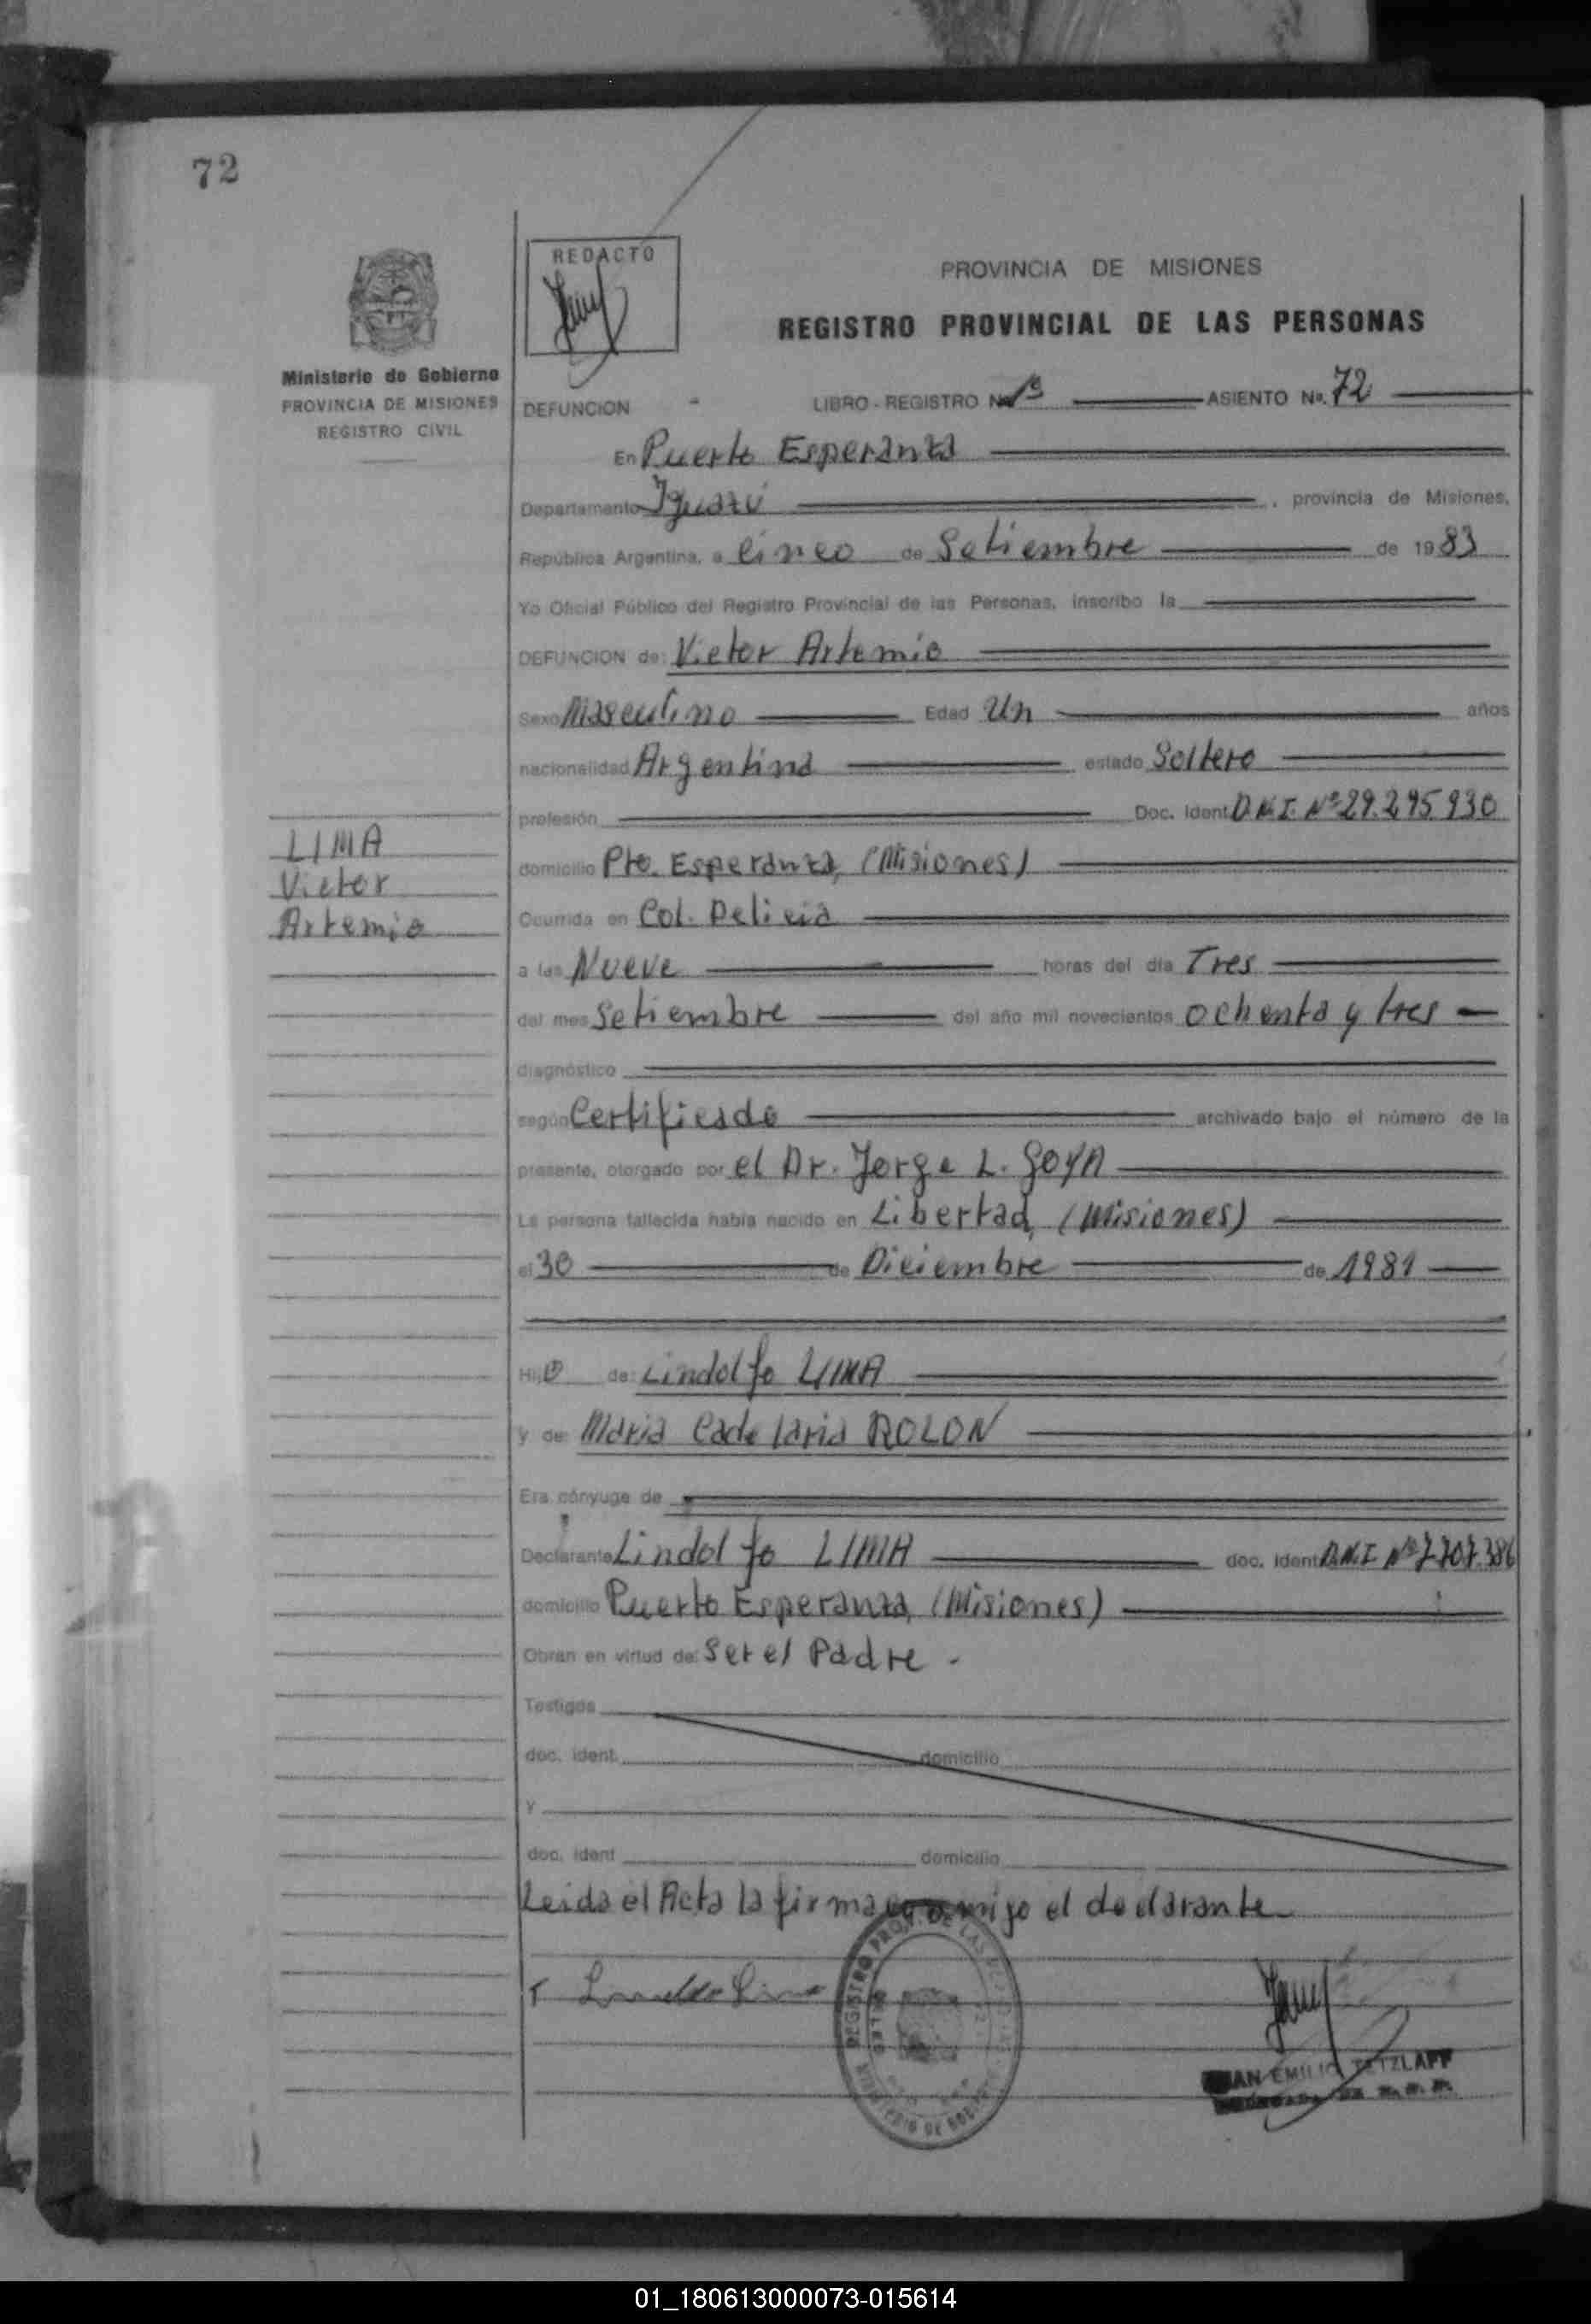 72
REDACTO
PROVINCIA DE MISIONES
REGISTRO PROVINCIAL DE LAS PERSONAS
Ministerio de Gobierno
PROVINCIA DE MISIONES
REGISTRO CIVIL
DEFUNCION - LIBRO - REGISTRO Nº ASIENTO Nº. 72
En Puerto Esperanza
Departamento Iguazú , provincia de Misiones,
República Argentina, a Cinco de Setiembre de 1983
Yo Oficial Público del Registro Provincial de las Personas, inscribo la
DEFUNCION de: Victor Artemio
Sexo Masculino Edad Un años
nacionalidad Argentina estado Soltero
profesión Doc. Ident. D.N.I. Nº 29.295.930
LIMA
Victor
Artemio
domicilio Pto. Esperanza, (Misiones)
Ocurrida en Col. Delicia
a las Nueve horas del día Tres
del mes Setiembre del año mil novecientos ochenta y tres
diagnóstico
según Certificado archivado bajo el número de la
presente, otorgado por el Dr. Jorge L. GOYA
La persona fallecida había nacido en Libertad, (Misiones)
el 30 de Diciembre de 1981
Hijo de: Lindolfo LIMA
y de: Maria Cadelaria ROLON
Era cónyuge de
Declarante Lindolfo LIMA doc. Ident. D.N.I Nº 7.707.386
domicilio Puerto Esperanza, (Misiones)
Obran en virtud de: Ser el Padre.
Testigos
doc. ident. domicilio
Y
doc. ident domicilio
Leida el Acta la firma conmigo el declarante
REGISTRO PROV. DE LAS
EMILIO TETZLAFF
01_180613000073-015614